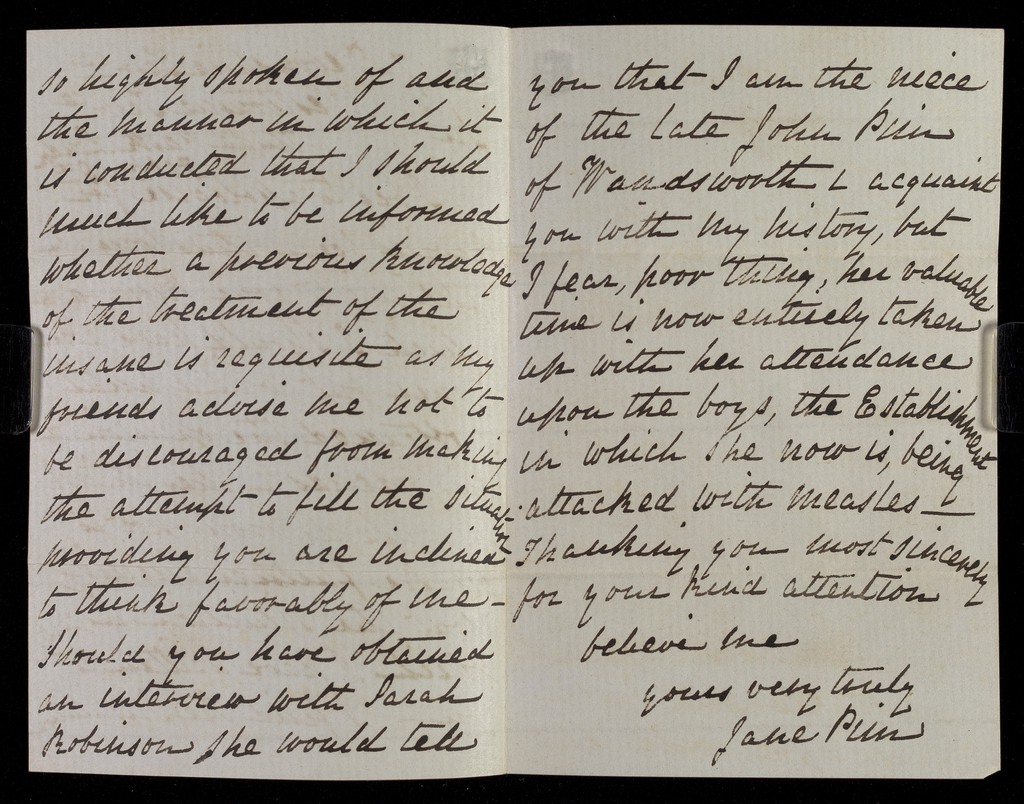 so highly spoken of and
the manner in which it
is conducted that I should
much like to be informed
whether a previous knowledge
of the treatment of the
insane is requisite as my
friends advise me not to
be discouraged from making
the attempt to fill the situation
providing you are inclined
to think favorably of me –
Should you have obtained
an interview with Sarah
Robinson she would tell
you that I am the niece
of the late John Pim
of Wandsworth & acquaint
you with my history, but
I fear, poor thing, her valuable
time is now entirely taken
up with her attendance
upon the boys, the Establishment
in which she now is, being
attacked with measles —
Thanking you most sincerely
for your kind attention
believe me
yours very truly
Jane Pim